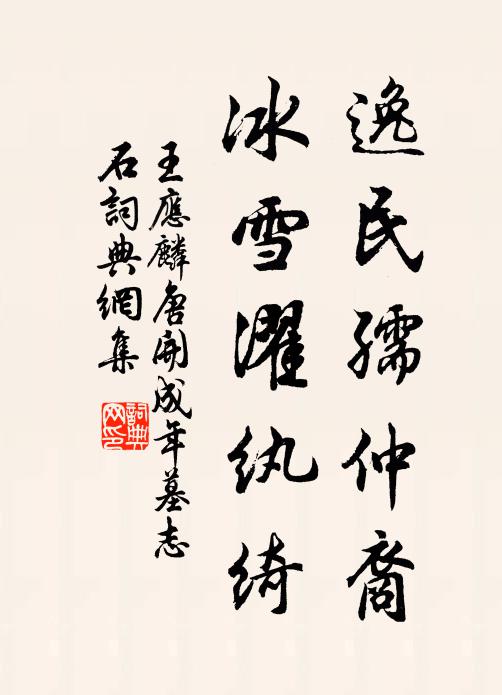 逸民孺仲裔
冰雪濯纨綺
王應麟唐開成年墓志
石詞典網集
詞典网印